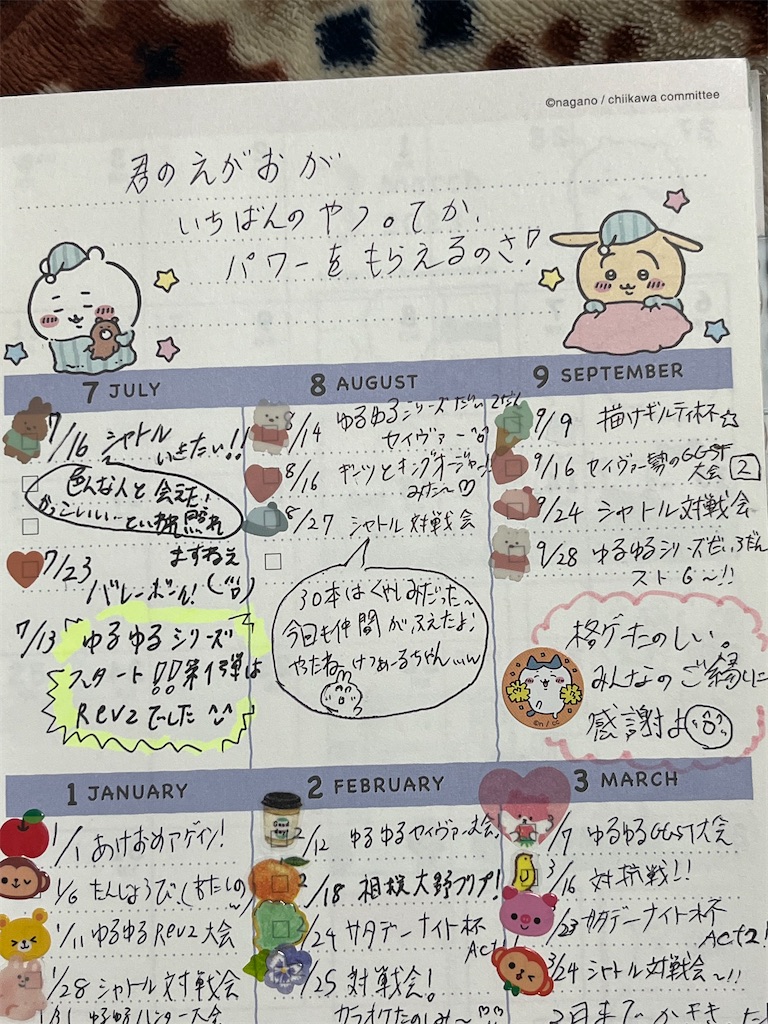 ©nagano / chiikawa committee
君のえがおが
いちばんのやつってか、
パワーをもらえるのさ!
7 JULY
7/16 シャトル
いきたい!!
色んな人と会えた!
かっこいいーとい
7/23
まずねえ
バレーボール!
7/13 ゆるゆるシリーズ
スタート!!第1弾は
Rev2でした
8 AUGUST
8/14 ゆるゆるシリーズだい2だん
セイヴァー
8/16 ギーツとキングオージャー
みた〜♡
8/27 シャトル対戦会
30本はくやしみだった〜
今日も仲間がふえたよ!
やったね
9 SEPTEMBER
9/9 描けギルティ杯☆
9/16 セイヴァー勢のGGSF
大会 2
9/24 シャトル対戦会
9/28 ゆるゆるシリーズだい3だん
スト6〜!!
格ゲーたのしい。
みんなのご縁に
感謝よ
©n / cc
1 JANUARY
1/1 あけおめアゲイン!
1/6 たんじょうび(あたしの)
1/11 ゆるゆるRev2大会
1/28 シャトル対戦会
1/31 ゆるゆるハンター大会
2 FEBRUARY
Good day
2/12 ゆるゆるセイヴァー大会
2/18 相模大野
2/24 サタデーナイト杯
Act1!
2/25 対戦会!
カラオケたのしみ〜
3 MARCH
3/7 ゆるゆるGGST大会
3/16 対抗戦!!
3/23 サタデーナイト杯
Act2!
3/24 シャトル対戦会〜!!